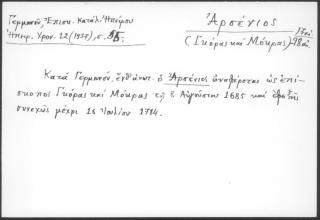 Γερμανοῦ, Ἐπισκ. Κατάλ. Ἠπείρου
Ἠπειρ. Χρον. 12 (1937), σ.
Ἀρσένιος
(Γκόρας καὶ Μόκρας)
17 αἰ.
18 αἰ.
Κατὰ Γερμανόν, ἔνθ' ἀνωτ. ὁ Ἀρσένιος ἀναφέρεται ὡς ἐπί-
σκοπος Γκόρας καὶ Μόκρας τῇ 8 Αὐγούστου 1685 καὶ ἐφεξῆς
συνεχῶς μέχρι 16 Ἰουλίου 1714.